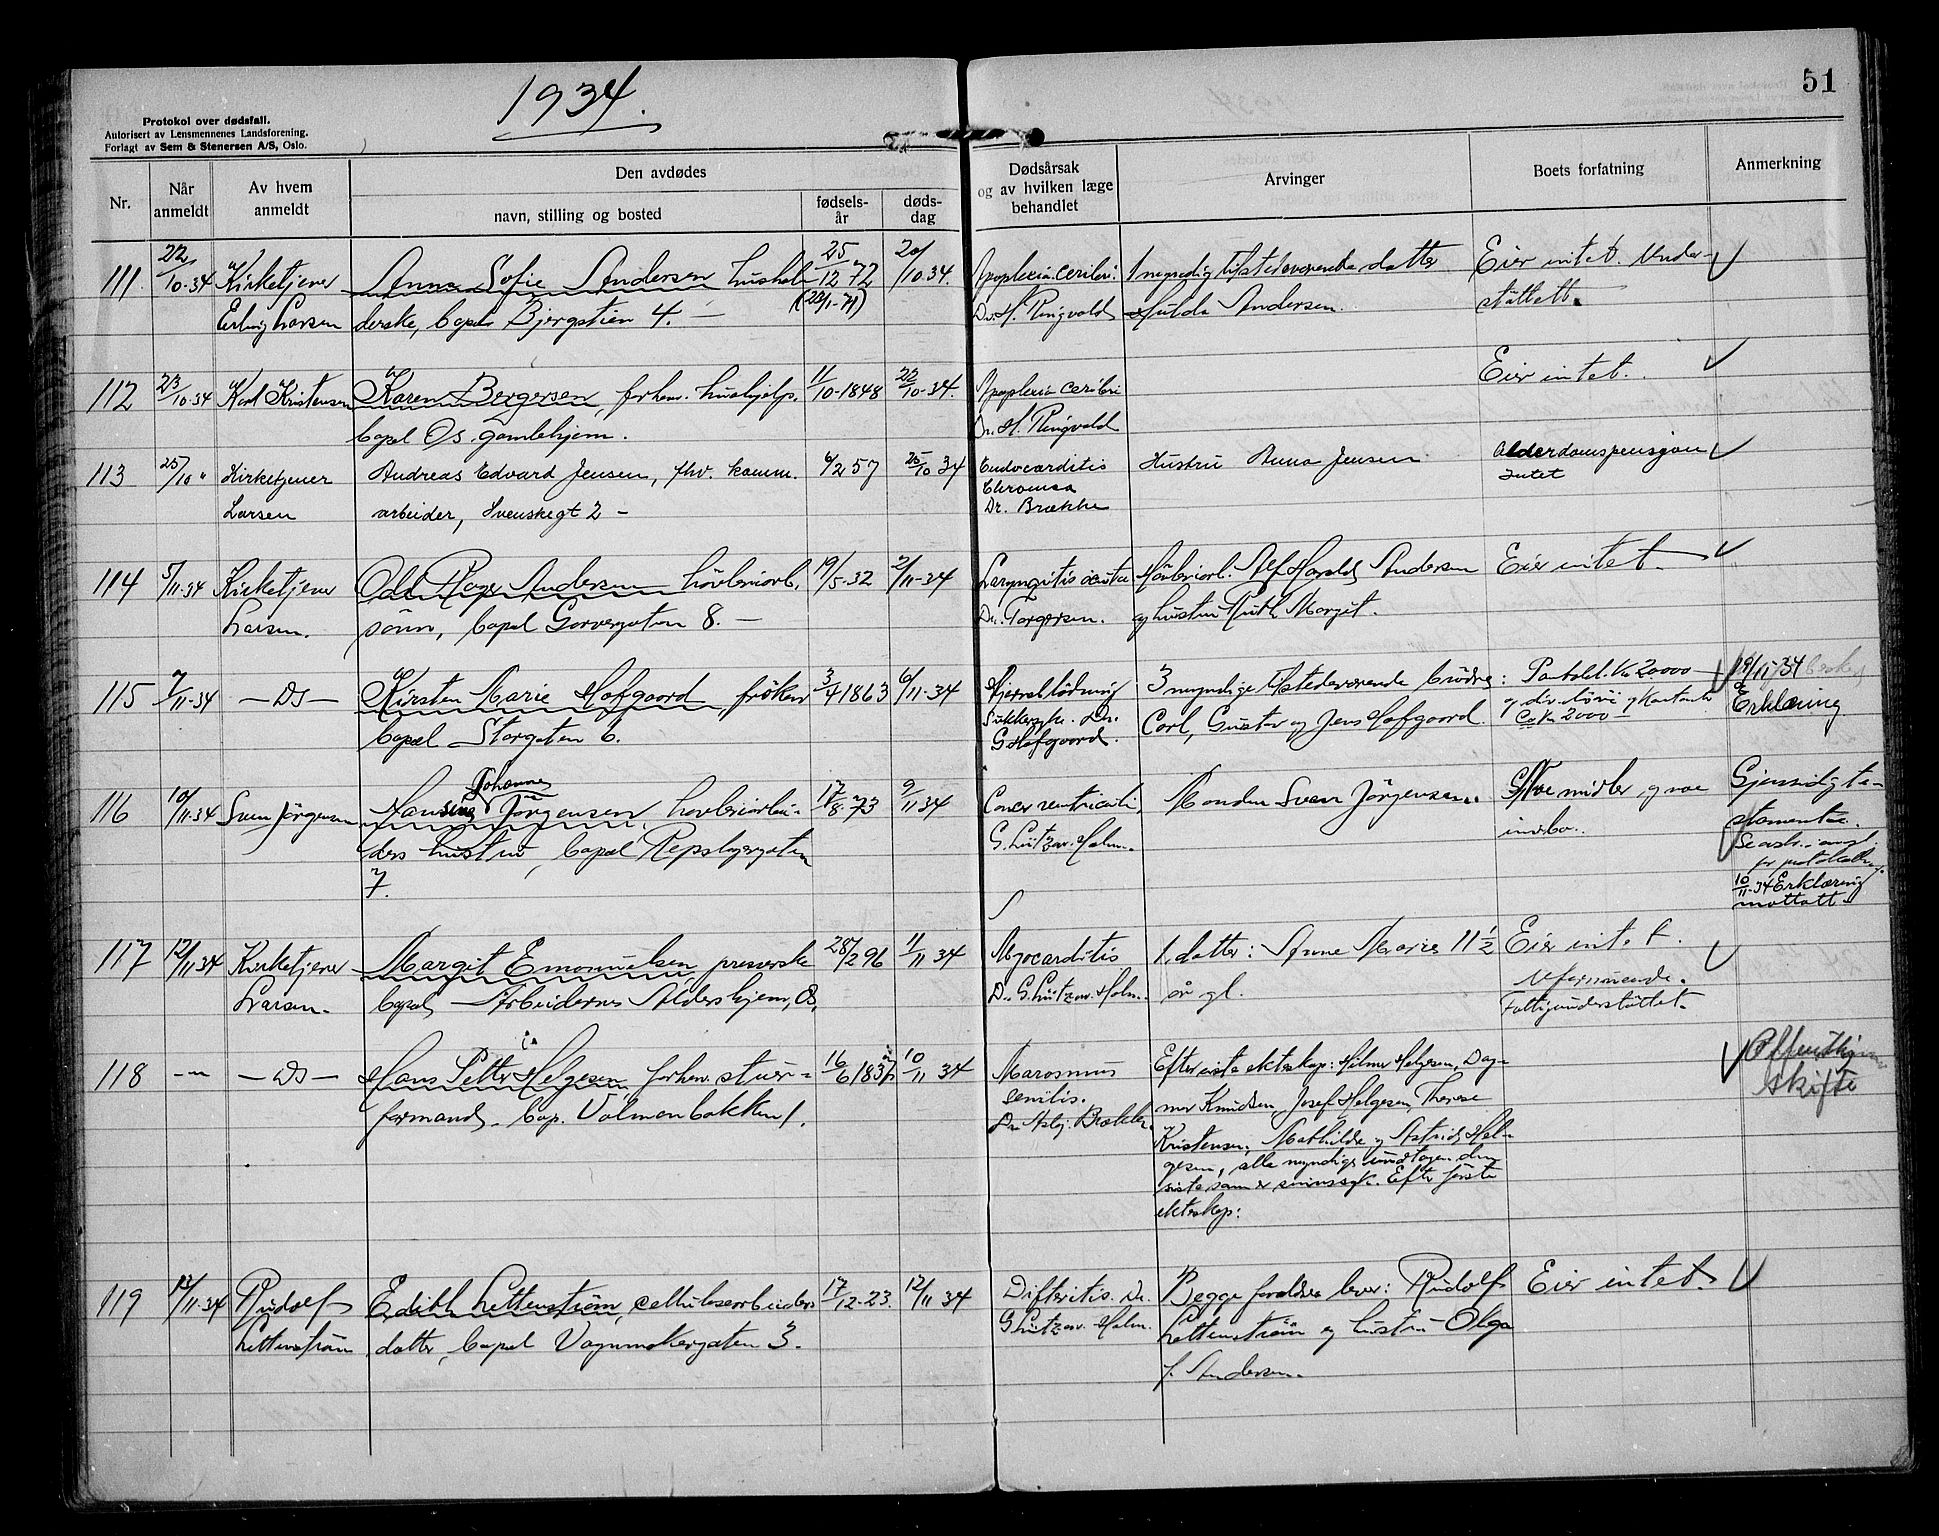 1934.
51
Protokol over dødsfall.
Autorisert av Lensmennenes Landsforening.
Forlagt av Sem & Stenersen A/S, Oslo.
Nr.
Når anmeldt
Av hvem anmeldt
Den avdødes
navn, stilling og bosted
fødselsår
dødsdag
Dødsårsak og av hvilken læge behandlet
Arvinger
Boets forfatning
Anmerkning
111. 22/10-34 Kirketjener Anna Sofie Andersen hushol- 25/12-72 20/10 34. Apoplexia cerileri: 1 myndig tilstedeværende datter Eier intet. Under-
Erling Larsen derske, bopel Bjergstien 4. — Dr. H. Ringvold Hulda Andersen. støttett.
112 23/10-34 Karl Kristensen Karen Bergersen, forhen. hushjelp. 11/10-1848 22/10-34. Apoplexia cerileri Eier intet.
bopel Os gamlehjem. Dr. H. Ringvold
113 25/10 " Kirketjener Andreas Edvard Jensen, fhv. komm. 6/2 57 25/10 34 Endocarditis Hustru Anna Jensen Alderdomspensjon
Larsen arbeider, Svenskegt 2 – Chronica Intet
Dr. Brække
114 5/11-34 Kirketjener Odd Roger Andersen høvleriarb. 19/5-32 2/11-34 Laryngitis acuta Høvleriarb. Alf Harald Andersen Eier intet.
Larsen. sønn, bopel Garvergaten 8. — Dr. Torgersen. og hustru Ruth Margit.
115 7/11-34 — Ds — Kirsten Marie Hofgaard, frøken 3/4 1863 6/11-34 Hjerneblødning 3 myndige tilstedeværende brødre: Pantobl. Kr 20000 19/11-34
Sukkersyke. Dr. og div. løsøre og kontanter Erklæring
bopel Storgaten 6. G. Hofgaard. Carl, Gustav og Jens Hofgaard. Ca Kr 2000 —
Johanne
116 10/11-34 Sven Jørgensen Hansine Jørgensen, høvleriarbei- 17/8-73 9/11 34 Cancer ventriculi, Manden Svan Jørgensen. midler og noe Gjensidig te-
ders hustru, bopel Repslagergaten G. Lützow-Holm. innbo. stamente.
7. 10/11-34 Erklæring
mottatt.
117 12/11 34 Kirketjener Margit Emanuelsen, presserske 28/2 96 11/11 34 Myocarditis 1 datter: Anne Marie 11 1/2 Eier intet.
Larsen. bopel, Arbeidernes Aldershjem, Os. Dr. G. Lützow-Holm. år gl. Uformuende.
Fattigunderstøttet.
118 —"— — Ds — Hans Petter Helgesen forhen. stuer- 16/6 183 10/11 34 Marasmus Efter siste ekteskap: Hilmer Helgesen, Dag- Offentlig
formand. bop. Volmen bakken 1. senilis. mar Knudsen, Josef Helgesen, Therese skifte
Dr. Asbj. Brække. Kristensen, Mathilde og Astrid Hel-
gesen, alle myndige undtagen den
siste som er sinnssyk. Efter første
ekteskap:
119 13/11-34 Rudolf Edith Lettenstrøm, cellulosearbeiders 17/12-23. 12/11 34 Difteritis. Dr. Begge foreldre lever: Rudolf Eier intet.
Lettenstrøm datter, bopel Vognmakergaten 3. G. Lützow-Holm. Lettenstrøm og hustru Olga
f. Andersen.